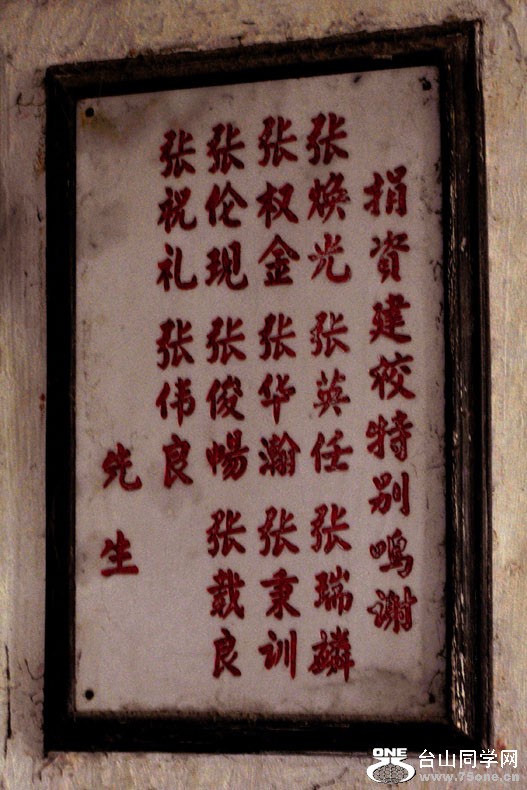 捐資建校特别鸣谢
张焕光 张英任 张瑞麟
张权金 张华瀚 张秉训
张伦现 张俊畼 张载良
张祝礼 张伟良
先生
ONE
台山同学网
www.75one.cn